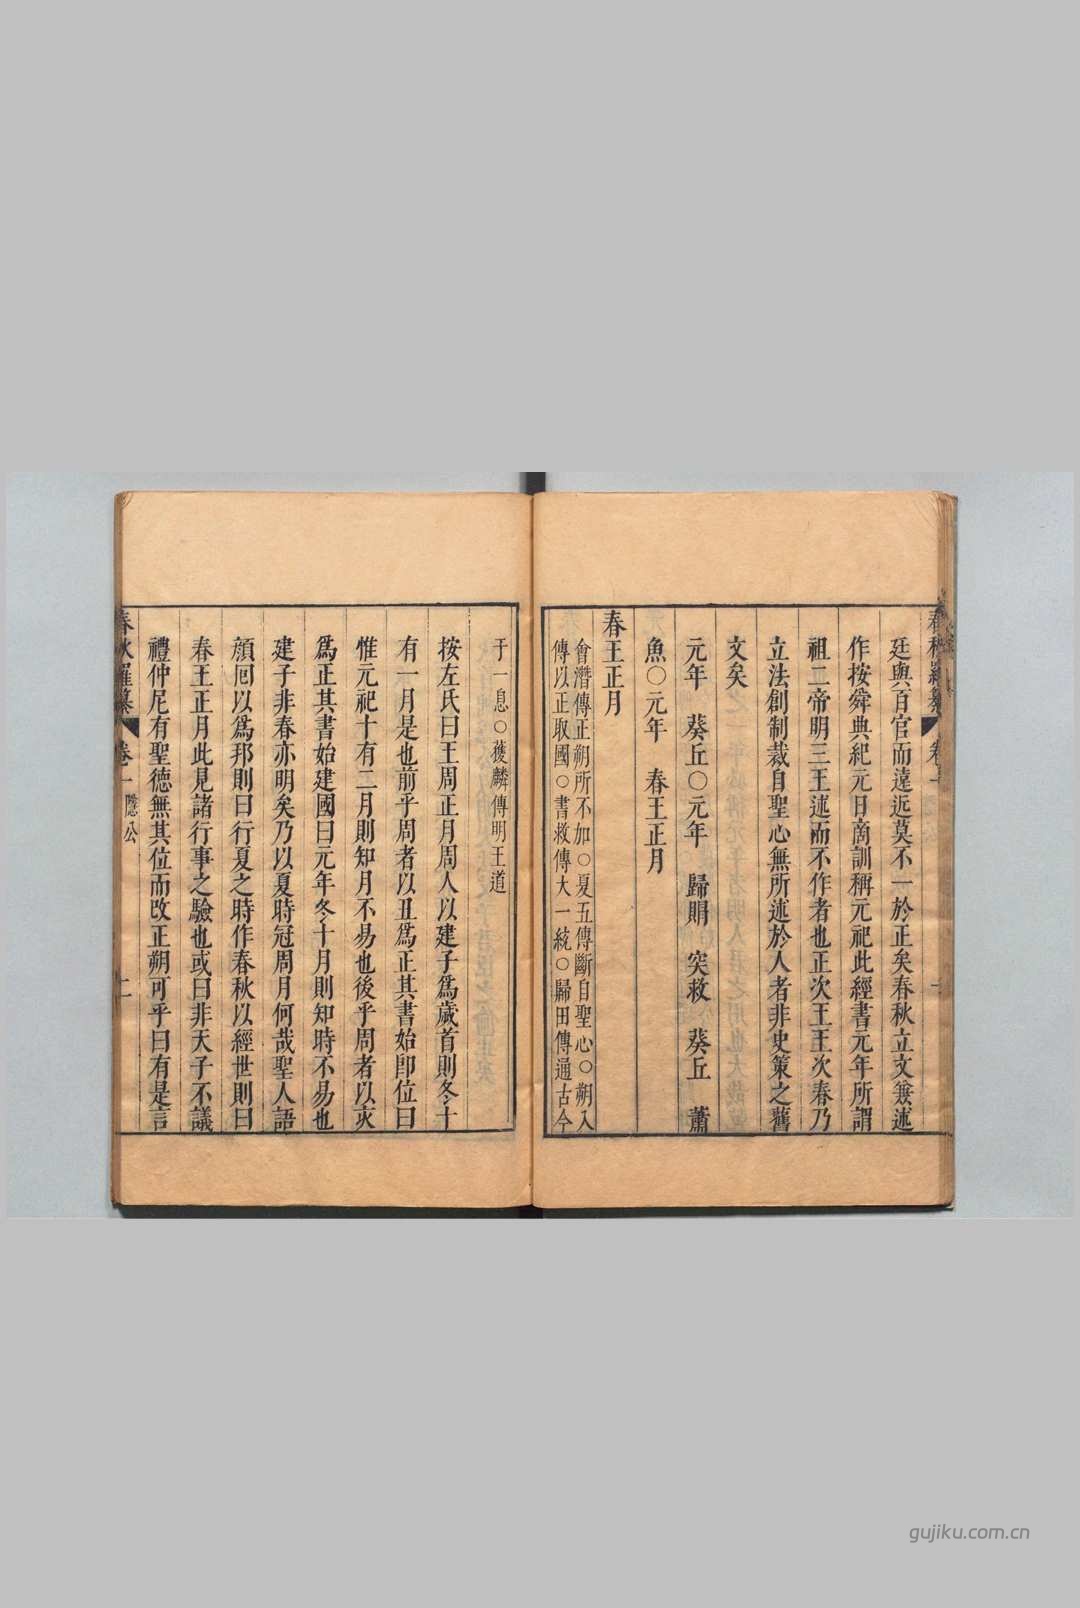 廷與百官而遠近莫不一於正矣春秋立文兼述
作按舜典紀元日商訓稱元祀此經書元年所謂
祖二帝明三王述而不作者也正次王王次春乃
立法創制裁自聖心無所述於人者非史策之舊
文矣
元年　葵丘○元年　歸賵　突救　葵丘　蕭
魚○元年　春王正月
春王正月
會潛傳正朔所不加○夏五傳斷自聖心○朔入
傳以正取國○書救傳大一統○歸田傳通古今
于一息○獲麟傳明王道
按左氏曰王周正月周人以建子爲歲首則冬十
有一月是也前乎周者以丑爲正其書始卽位曰
惟元祀十有二月則知月不易也後乎周者以亥
爲正其書始建國曰元年冬十月則知時不易也
建子非春亦明矣乃以夏時冠周月何哉聖人語
顏囘以爲邦則曰行夏之時作春秋以經世則曰
春王正月此見諸行事之驗也或曰非天子不議
禮仲尼有聖德無其位而改正朔可乎曰有是言
春秋羅纂　卷一　隱公　二
gujiku.com.cn